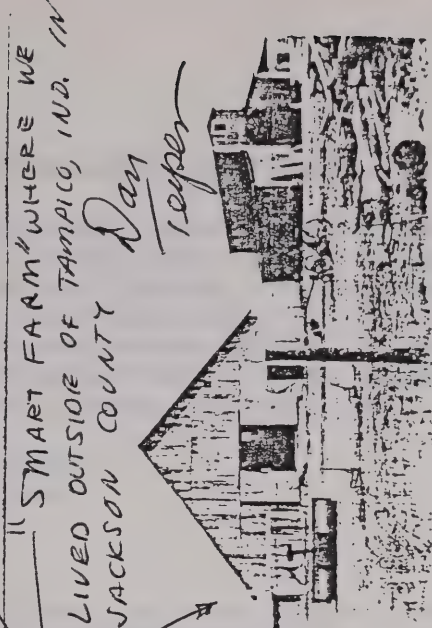 "SMART FARM" WHERE WE
LIVED OUTSIDE OF TAMPICO, IND. IN
JACKSON COUNTY
Dan